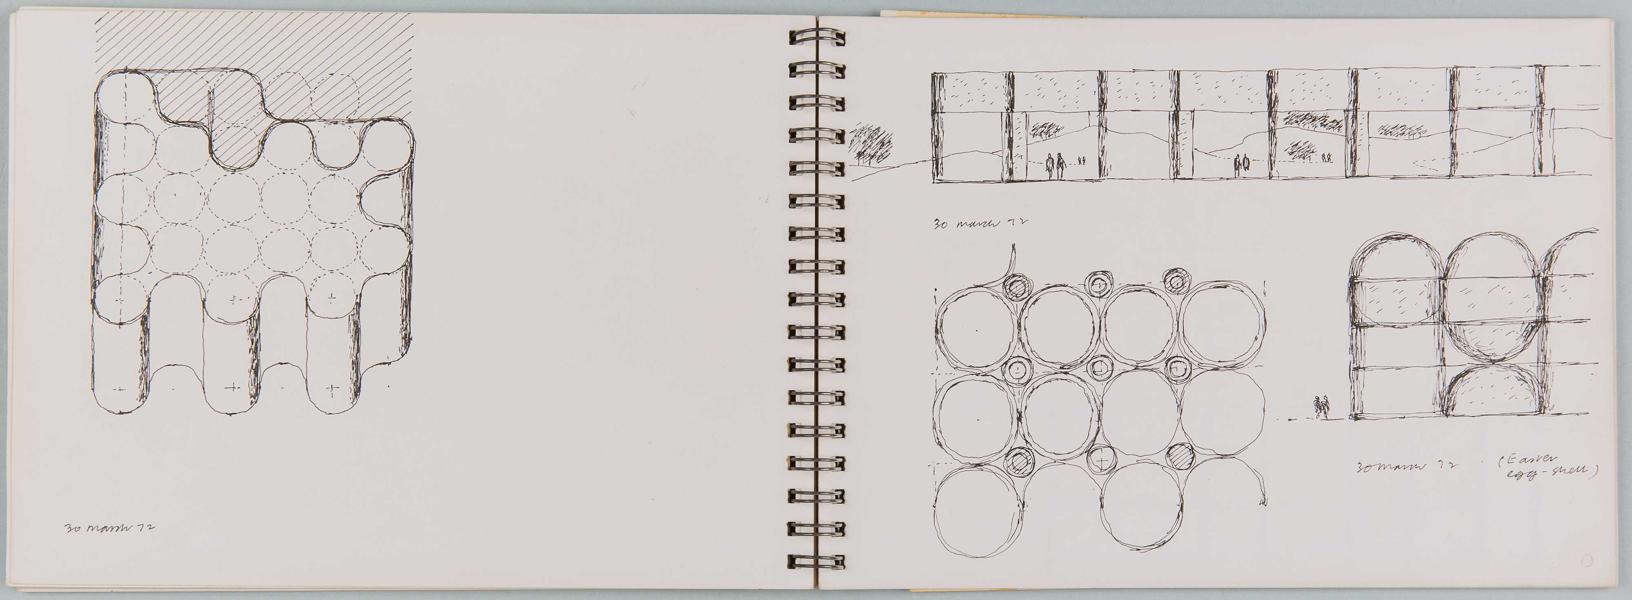 30 march 72
30 march 72
30 march 72 (Easter
egg-shell)